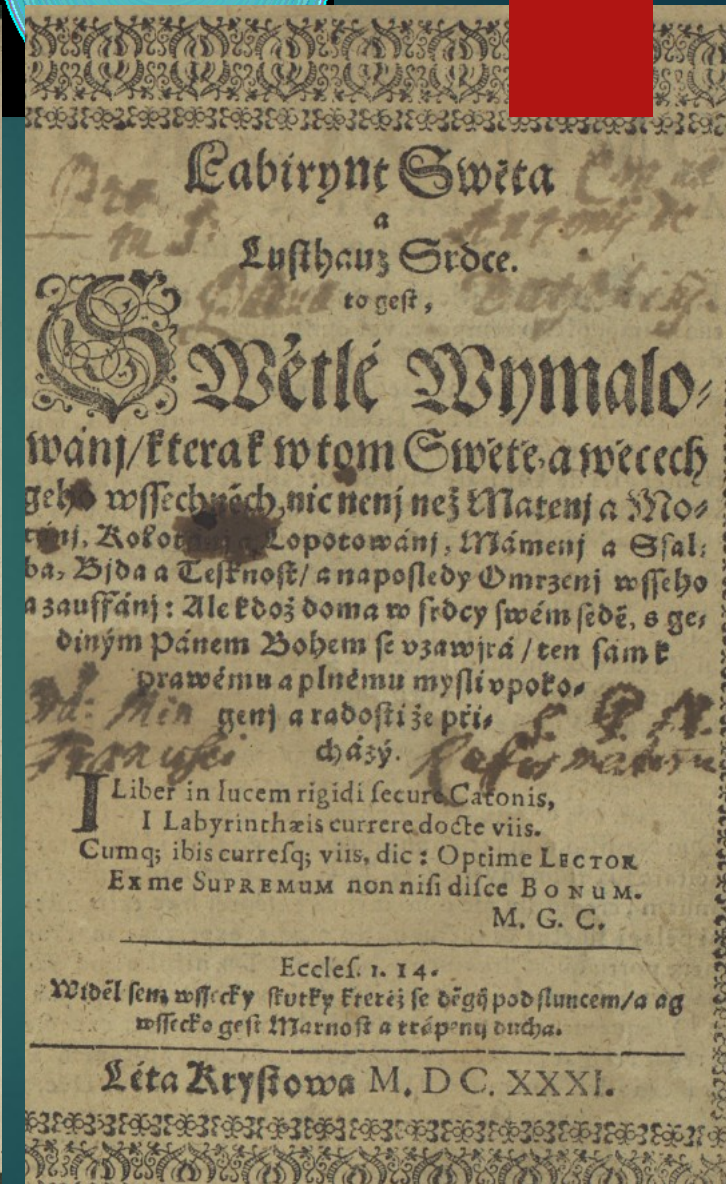 Labirynt Swěta
a
Lusthauz Srdce.
to gest,
SWětlé Wymalo⸗
wánj/kterak w tom Swětě, a wěcech
geho wssechněch, nic nenj než Matenj a Mo⸗
tánj, a Lopotowánj, Mámenj a Ssal⸗
ba, Bjda a Tesknost/ a naposledy Omrzenj wsseho
a zauffánj: Ale kdož doma w srdcy swém sedě, s ge⸗
diným Pánem Bohem se vzawjrá/ten sám k
prawému a plnému mysli vpoko⸗
genj a radosti že při⸗
cházý.
I Liber in lucem rigidi secure Catonis,
I Labyrinthæis currere docte viis.
Cumq; ibis curresq; viis, dic: Optime LECTOR
Ex me SUPREMUM non nisi disce BONUM.
M. G. C.
Eccles. 1. 14.
Widěl sem wssecky skutky kteréž se děgij pod sluncem/a ag
wssecko gest Marnost a trápenij ducha.
Léta Krystowa M. DC. XXXI.